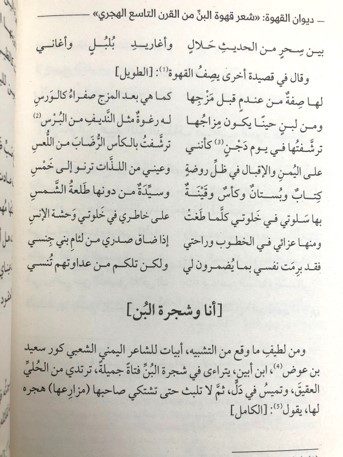 ديوان القهوة: «شعر قهوة البنّ من القرن التاسع الهجري» —
بين سِحرٍ من الحديثِ حَلالٍ وأغاريدِ بُلبُلٍ وأغاني
وقال في قصيدة أخرى يصِفُ القهوة(1): [الطويل]
لها صِفةٌ من عندمٍ قبل مَزْجِها كما هي بعد المزج صفراءُ كالوَرسِ
ومن لبنٍ حينًا يكون مِزاجُها له رغوةٌ مثل النَّديفِ من البُرْسِ(2)
ترشَّفتُها في يوم دَجْنٍ(3) كأنني ترشَّفتُ بالكأس الرُّضابَ من اللُّعسِ
على اليُمنِ والإقبال في ظلِّ روضةٍ وعيني من اللذَّات ترنو إلى خَمْسِ
كِتابٌ وبُستانٌ وكأسٌ وقَيْنَةٌ وسيِّدةٌ من دونها طلعةُ الشَّمسِ
بها سَلوتي في خَلوتي كلَّما طَغَتْ على خاطري في خلوتي وَحشة الإنسِ
ومنها عزائي في الخطوب وراحتي إذا ضاق صدري من لئامِ بني جِنسي
فقد بَرِمَت نفسي بما يُضمرون لي ولكن تلكم من عداوتهم تُنسي
[أنا وشجرة البُن]
ومن لطيفِ ما وقع من التشبيه، أبيات للشاعر اليمني الشعبي كور سعيد
بن عوض(4)، ابن أبين، يتراءى في شجرة البنِّ فتاةً جميلةً، ترتدي من الحُليِّ
العقيقَ، وتميسُ في دَلٍّ، ثمَّ لا تلبث حتى تشتكي صاحبها (مزارِعها) هجره
لها، يقول(5): [الكامل]